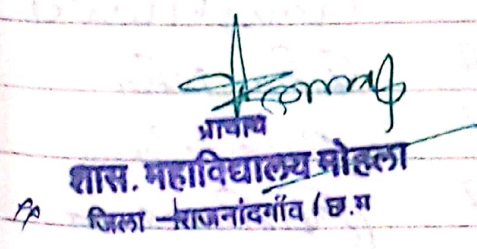 प्राचार्य
शास. महाविद्यालय मोहला
जिला - राजनांदगाँव (छ.ग